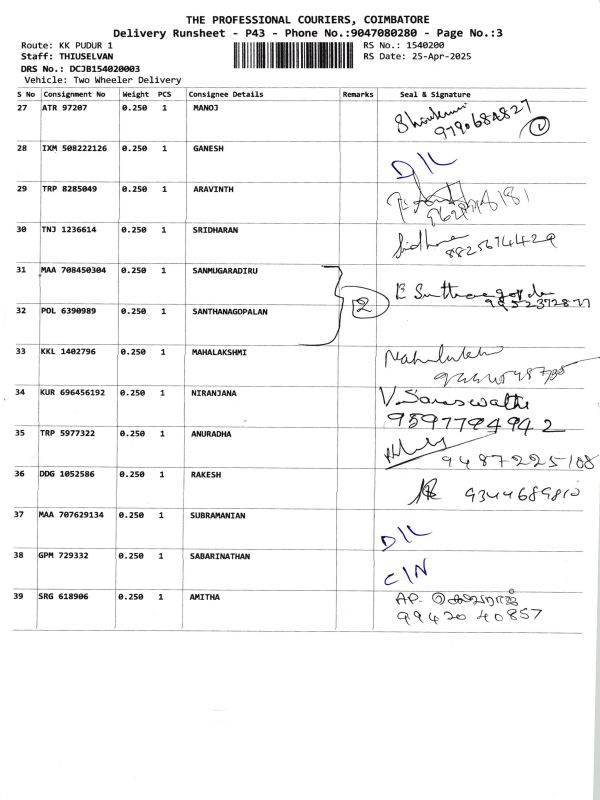 THE PROFESSIONAL COURIERS, COIMBATORE
Delivery Runsheet - P43 - Phone No.:9047080280 - Page No.:3
Route: KK PUDUR 1 RS No.: 1540200
Staff: THIUSELVAN RS Date: 25-Apr-2025
DRS No.: DCJB154020003
Vehicle: Two Wheeler Delivery
S No Consignment No Weight PCS Consignee Details Remarks Seal & Signature
27 ATR 97207 0.250 1 MANOJ
28 IXM 508222126 0.250 1 GANESH D/L
29 TRP 8285049 0.250 1 ARAVINTH
30 TNJ 1236614 0.250 1 SRIDHARAN
8825674429
31 MAA 708450304 0.250 1 SANMUGARADIRU
2
32 POL 6390989 0.250 1 SANTHANAGOPALAN
33 KKL 1402796 0.250 1 MAHALAKSHMI
34 KUR 696456192 0.250 1 NIRANJANA V.Saraswathi
9597794942
35 TRP 5977322 0.250 1 ANURADHA
9487225108
36 DDG 1052586 0.250 1 RAKESH 9344689810
37 MAA 707629134 0.250 1 SUBRAMANIAN D/L
38 GPM 729332 0.250 1 SABARINATHAN C/N
39 SRG 618906 0.250 1 AMITHA AP.
9942040857